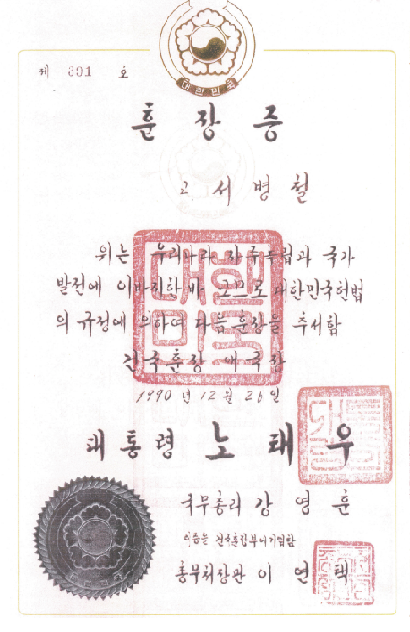 대한민국
제 691 호
훈장증
고 서병철
위는 우리나라 자주독립과 국가
발전에 이바지한바 크므로 대한민국헌법
의 규정에 의하여 다음 훈장을 추서함
건국훈장 애국장
1990년 12월 26일
대통령 노태우
국무총리 강영훈
이증을 건국훈장부에기입함
총무처장관 이연택